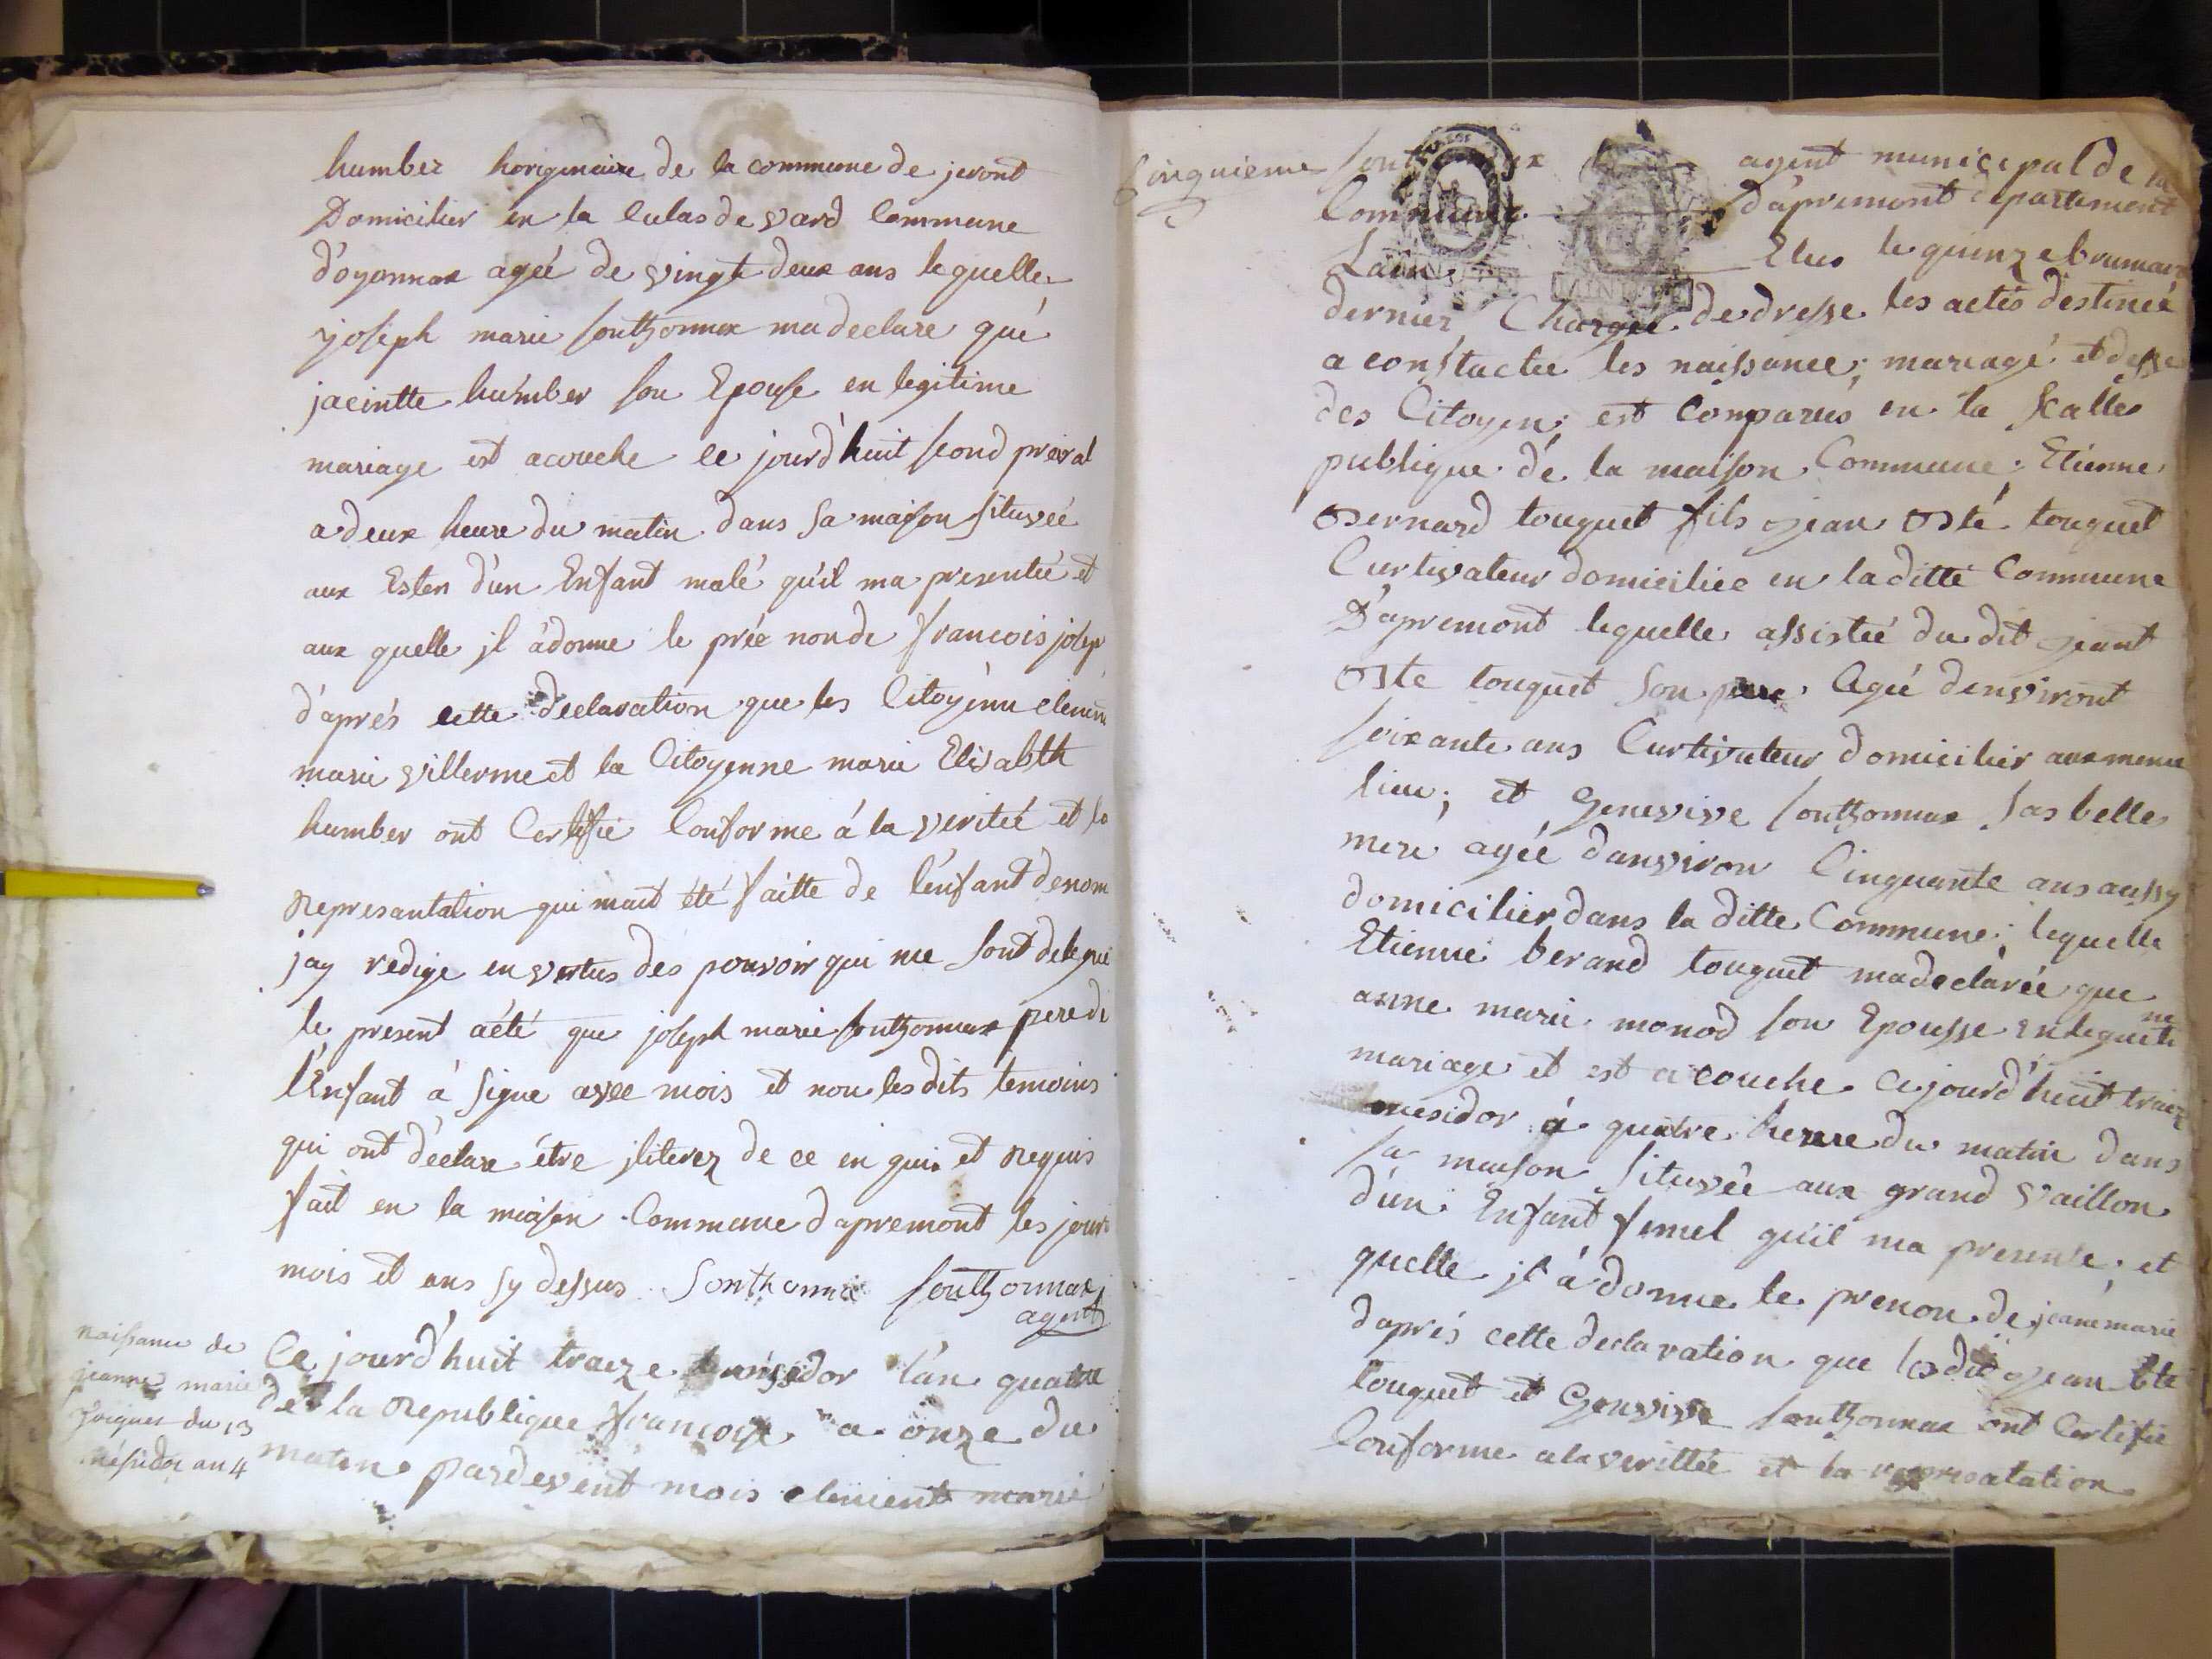 humber horiginaire de la commune de jeront
Domicilier en la Culas de vard Commune
d'oyonnax ageé de vingt deux ans lequelle
joseph marie Sonthonnax ma declare que
jacintte humber son Epouse en legitime
mariage est acouche ce jourd'huit segond preral
a deux heure du matin dans sa maison situveé
aux Esten d'un Enfant malé qu'il ma presenteé et
aux quelle jl àdonne le prée non de francois josep
d'aprés cette declaration que les Citoyenn clement
marie villerme et la Citoyenne marie Elisabth
humber ont Certifie Conforme á la veriteé et la
represantation qui mait été faitte de l'enfant denom
jay redige en vertus des pouvoir qui me sont delegué
le present aété que joseph marie Sonthonnax pere de
l'Enfant á signe avec mois et non les dits témoins
qui ont déclare étre jliterez de ce en quis et requis
fait en la maison Commune d'apremont les jours
mois et ans sy dessus Sonthonnax Sonthonnax
agent
naissance de
jeanne marie
du 13
mésidor an 4
Ce jourd'huit traize mésidor l'an quatre
de la republique francoise a onze du
matin pardevent mois clement marie
Cinquieme
Sonthonnax agent municipal de la
Commune d'apremont départiment
Lain Elus le quinze brumaire
dernier Chargeé de dresse les actés destineé
a constactée les naissance; mariagé et desse
des Citoyen; est Comparus en la Salle
publique dé la maison Commune; Etienne
Bernard touquet fils jean Bte touquet
Curtivateur domiciliée en laditte Commune
D'apremont lequelle assisteé du dit jeant
Bte touquet Son pere Ageé d'environt
soixante ans Curtivateur domicilier aux meme
lieu; et Genevive Sonthonnax Sas belle
mere ageé d'anviron Cinquante ans aussy
domicilier dans la ditte Commune; lequelle
Etienne berand touquet ma declareé que
anne marie monod son Epousse en legueti me
mariage et est acouche ce jourd'huit traize
mesidor á quatre heure du matin dans
sa maison situveé aux grand vaillon
d'un Enfant femel qu'il ma presente; et
quelle jl á donne le prenon de jeanne marie
daprés cette declaration que les dit jean Bte
touquet et Genvive Sonthonnax ont Certifié
Conforme a la verittée et la represatation